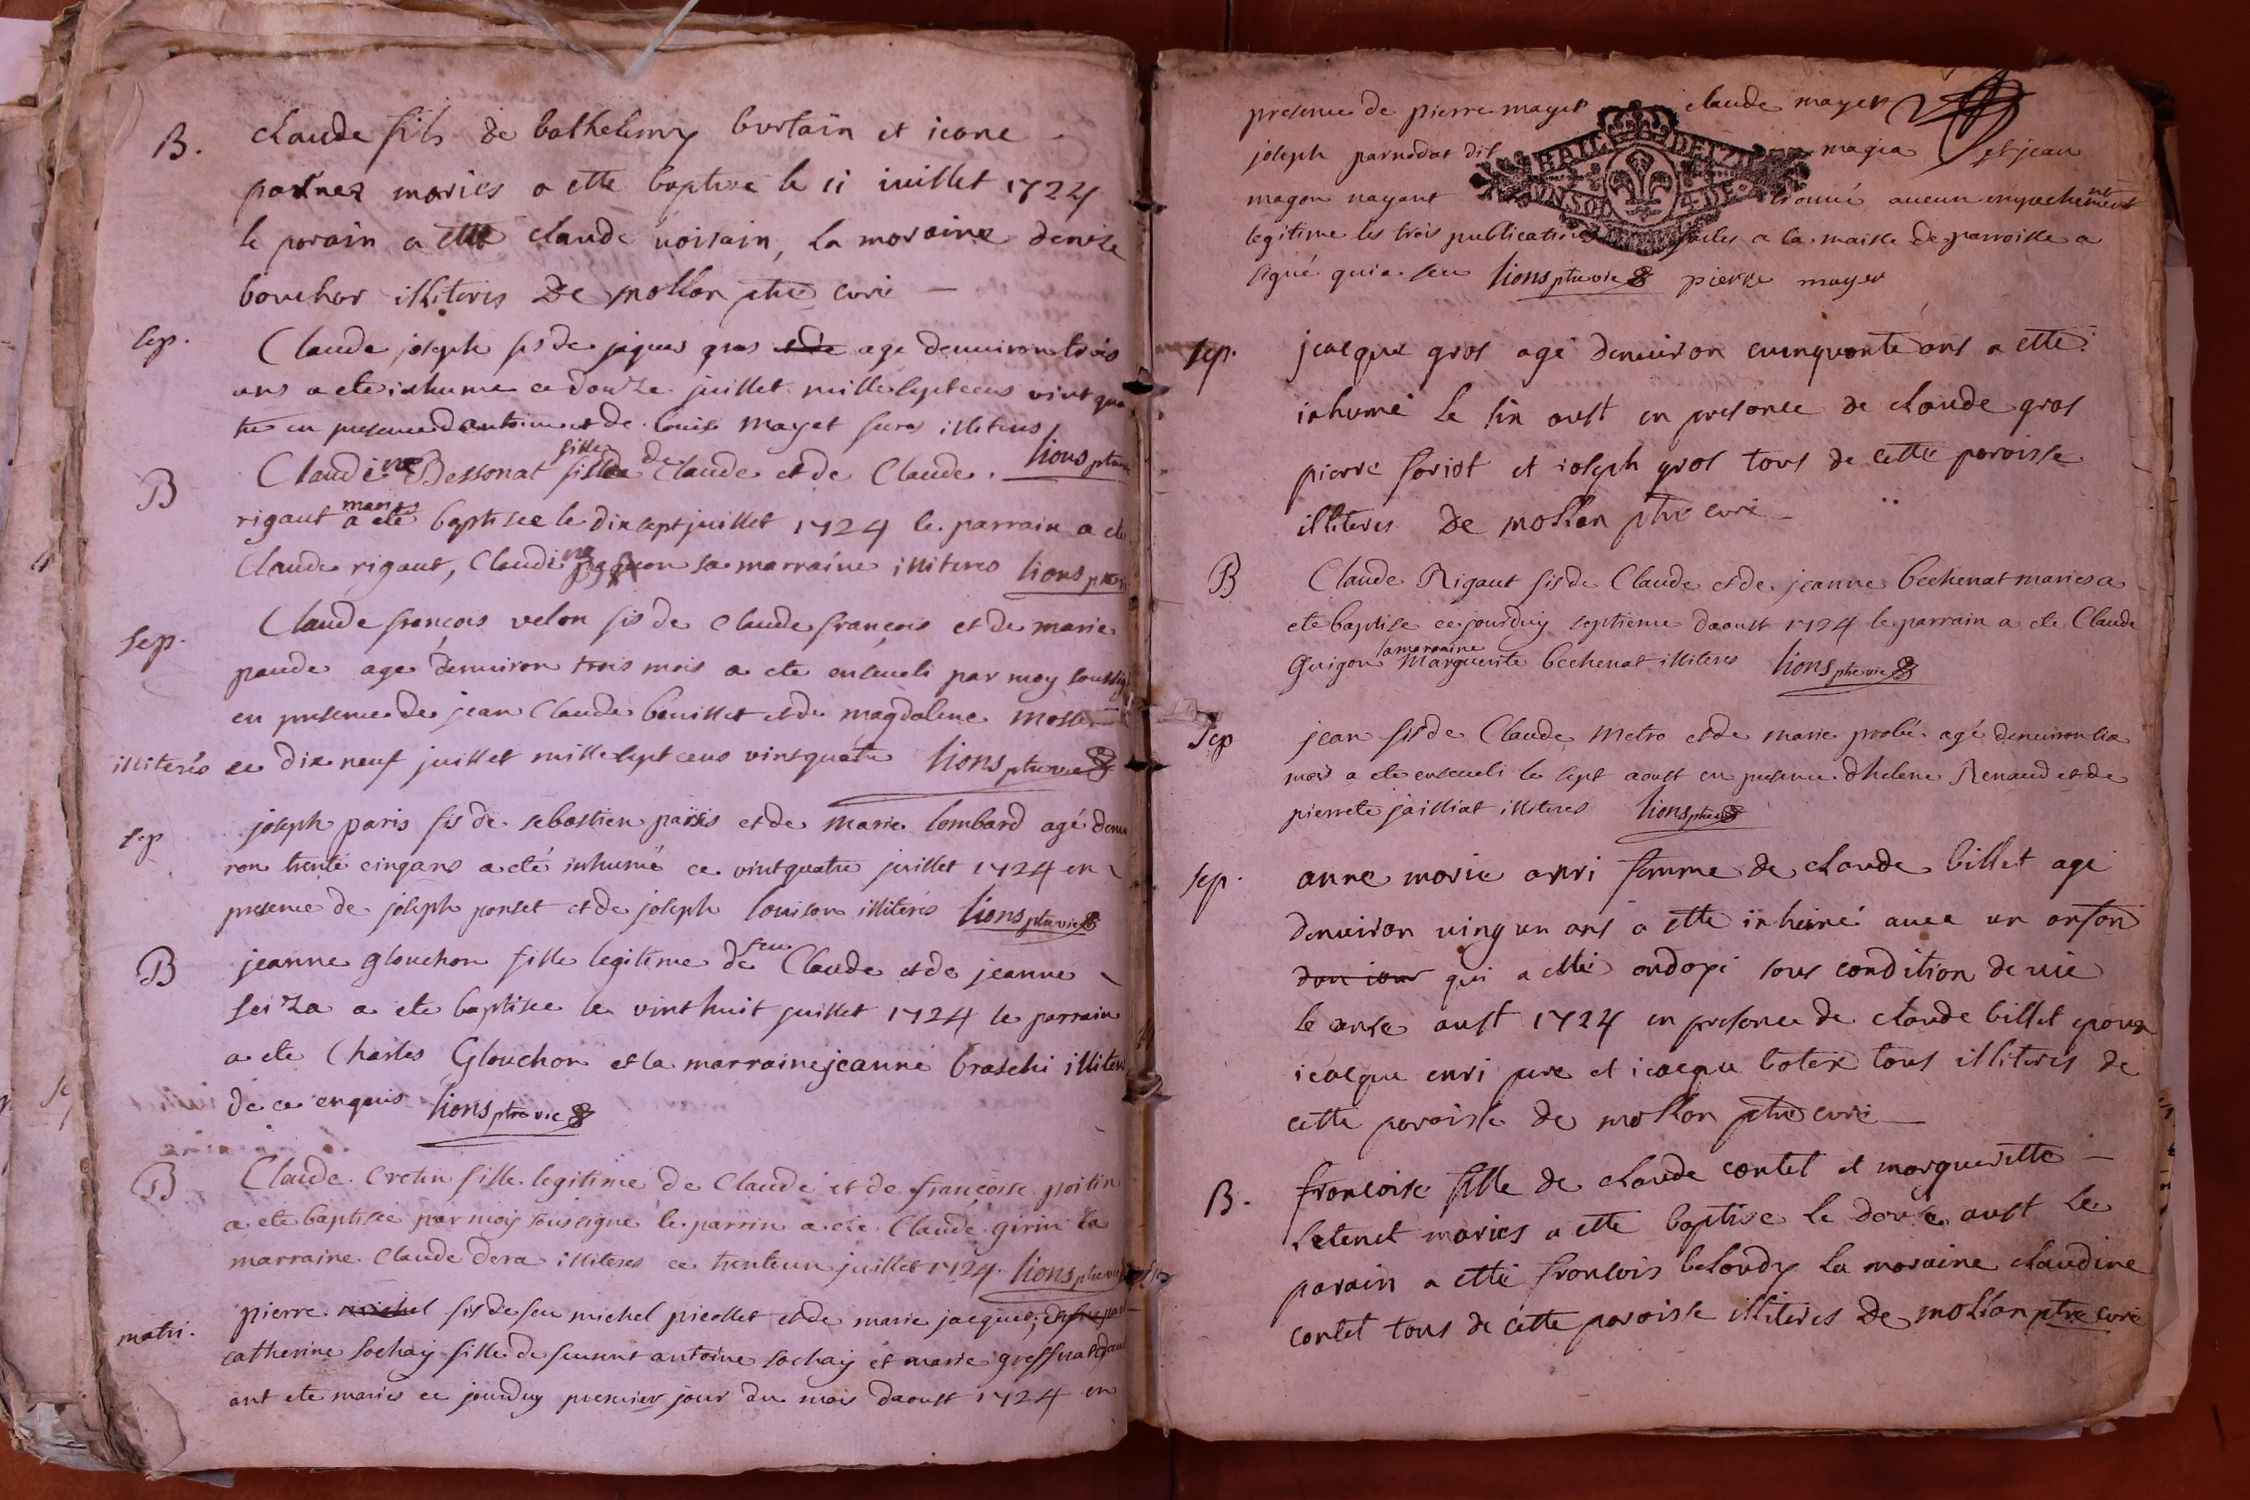 B. claude fils de bathelemy burtain et icane
parnez maries a ette baptise le 11 iuillet 1724
le parain a ette claude uoisain, la moraine denise
bouchor illiteres De mollon ptre curé
sep. Claude joseph fis de jaques gros age denuiron trois
ans a ete inhume ce douze juillet mille sept cens vint qua
tre en presence dantoine et de louise mayet seurs illiteres
lions ptre
B Claudine Bessonat fille de Claude et de Claude
rigaut maries a ete baptisee le dix sept juillet 1724 le parrain a ete
Claude rigaut, Claudine sa marraine illiteres lions ptre
sep. Claude françois velon fis de Claude françois et de marie
paude age denuiron trois mois a ete enseueli par moy soussig
en presence de jean Claude bouillet et de magdalene
illiterés ce dix neuf juillet mille sept cens vint quatre lions ptre vic
sep joseph paris fis de sebastien paris et de marie lombard agé denui
ron trente cinq ans a eté inhumé ce vint quatre juillet 1724 en
presence de joseph ponset et de joseph louison illiterés lions ptre vic
B jeanne glouchon fille legitime de feu Claude et de jeanne
seiza a ete baptisee le vint huit juillet 1724 le parrain
a ete Charles Glouchon et la marraine jeanne braschi illiteres
de ce enquis lions ptre vic
B Claude Cretin fille legitime de Claude et de françoise poitin
a ete baptisee par moy soussigne le parrin a ete Claude girin la
marraine Claude dera illiteres ce trente un juillet 1724. lions ptre vic
matri. pierre michel fis de feu michel picollet et de marie jacques,
catherine sochay fille de feu antoine sochay et marie
ont ete maries ce jourduy premier jour du mois daoust 1724 en
presence de pierre mayet claude mayet
joseph parnodat dit magia et jean
magon nayant trouué aucun empechement
legitime les trois publications faites a la messe de parroisse a
signé qui a seu lions ptre vic pierre mayet
GNALE DE
4 DE
sep. jcacque gros age denuiron cuinquonte ans a ette
inhumé le sin oust en presonce de claude gros
pierre soriot et ioseph gros tous de cette paroisse
illiteres De mollon ptre curé
B Claude Rigaut fis de Claude et de jeanne bechenat maries a
ete baptise ce jourduy septieme daoust 1724 le parrain a ete Claude
Guigon la marraine Marguerite bechenat illiteres lions ptre vic
Sep jean fis de Claude Metra et de marie probé agé denuiron six
mois a ete enseueli le sept aoust en presence dhelene Renaud et de
pierrete jailliat illiteres lions ptre vic
sep. anne marie anri femme de claude billet age
denuiron uing un ans a ette inhumé auec un onfon
dun iour qui a etté ondoyé sous condition de uie
le onse aust 1724 en presonce de claude billet epoux
icacque enri pere et icacque botex tous illiteres de
cette paroisse de mollon ptre curé
B. francoise fille de claude contet et marguerette
letenet maries a ette baptise le douse aust le
parain a etté francois belondy la moraine claudine
contet tous de cette paroisse illiteres De mollon ptre curé